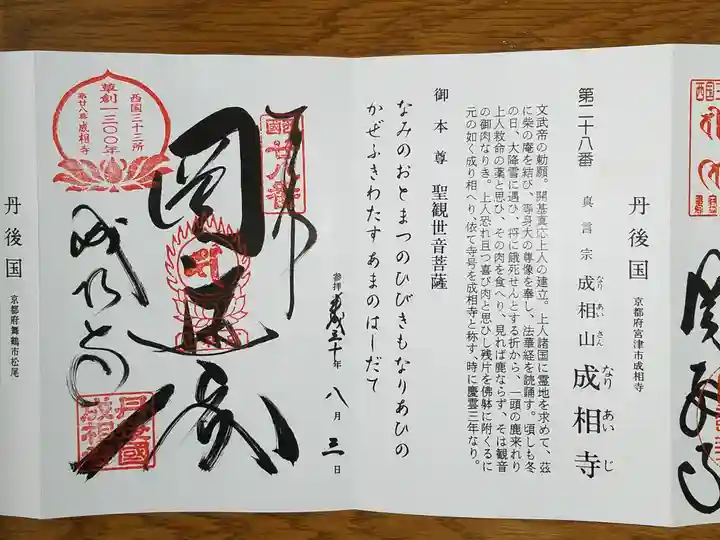 第二十八番
真言宗
成相山
なりあいさん
成相寺
なりあいじ
丹後国
京都府宮津市成相寺
文武帝の勅願。開基真応上人の建立。上人諸国に霊地を求めて、茲
に柴の庵を結び、等身大の尊像を奉し、法華経を読誦す。頃しも冬
の日、大降雪に遇ひ、将に餓死せんとする折から、一頭の鹿来れり
上人救命の薬と思ひ、その肉を食へり、見れば鹿ならず、そは観音
の御肉なりき。上人恐れ且つ喜び肉と思ひし残片を佛躰に附くるに
元の如く成り相へり、依て寺号を成相寺と称す、時に慶雲三年なり。
御本尊
聖観世音菩薩
なみのおとまつのひびきもなりあひの
かぜふきわたすあまのはしだて
参拝
平成三十年
八月三日
奉拝
圓通閣
成相寺
西国
廿八番
西国三十三所
草創一三〇〇年
第廿八番 成相寺
丹後國
成相寺
丹後国
京都府舞鶴市松尾